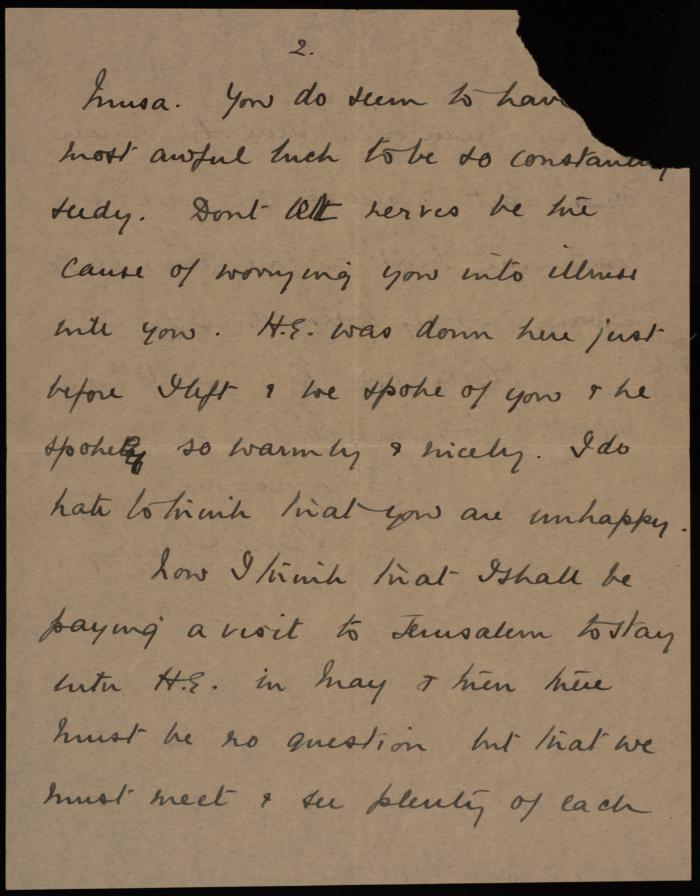 2.
Musa. You do seem to hav
most awful luck to be so constantly
seedy. Dont let nerves be the
cause of worrying you into illness
will you. H.E. was down here just
before I left & we spoke of you & he
spoke so warmly & nicely. I do
hate to think that you are unhappy.
Now I think that I shall be
paying a visit to Jerusalem to stay
with H.E. in May & then there
must be no question but that we
must meet & see plenty of each